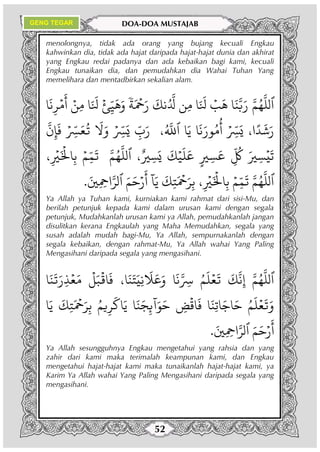 GENG TEGAR
DOA-DOA MUSTAJAB
menolongnya, tidak ada orang yang bujang kecuali Engkau
kahwinkan dia, tidak ada hajat daripada hajat-hajat dunia dan akhirat
yang Engkau redai padanya dan ada kebaikan bagi kami, kecuali
Engkau tunaikan dia, dan pemudahkan dia Wahai Tuhan Yang
memelihara dan mentadbirkan sekalian alam.
ٱللَّهُمَّ رَبَّنَا هَبْ لَنَا مِن لَّدُنكَ رَحْمَةً وَهَيِّئْ لَنَا مِنْ أَمْرِنَا
رَشَدًا، يَسِّرْ أُمُورَنَا يَا ٱللَّهُ، رَبِّ يَسِّرْ وَلَا تُعَسِّرْ فَإِنَّ
تَيْسِيرَ كُلِّ عَسِيرٍ عَلَيْكَ يَسِيرٌ، ٱللَّهُمَّ تَمِّمْ بِالْخَيْرِ،
ٱللَّهُمَّ تَمِّمْ بِالْخَيْرِ، بِرَحْمَتِكَ يَآ أَرْحَمَ ٱلرَّاحِمِينَ.
Ya Allah ya Tuhan kami, kurniakan kami rahmat dari sisi-Mu, dan
berilah petunjuk kepada kami dalam urusan kami dengan segala
petunjuk, Mudahkanlah urusan kami ya Allah, pemudahkanlah jangan
disulitkan kerana Engkaulah yang Maha Memudahkan, segala yang
susah adalah mudah bagi-Mu, Ya Allah, sempurnakanlah dengan
segala kebaikan, dengan rahmat-Mu, Ya Allah wahai Yang Paling
Mengasihani daripada segala yang mengasihani.
ٱللَّهُمَّ إِنَّكَ تَعْلَمُ سِرَّنَا وَعَلَانِيَتَنَا، فَاقْبَلْ مَعْذِرَتَنَا
وَتَعْلَمُ حَاجَاتِنَا فَاقْضِ حَوَآئِجَنَا يَاكَرِيمُ بِرَحْمَتِكَ يَا
أَرْحَمَ ٱلرَّاحِمِينَ.
Ya Allah sesungguhnya Engkau mengetahui yang rahsia dan yang
zahir dari kami maka terimalah keampunan kami, dan Engkau
mengetahui hajat-hajat kami maka tunaikanlah hajat-hajat kami, ya
Karim Ya Allah wahai Yang Paling Mengasihani daripada segala yang
mengasihani.
52